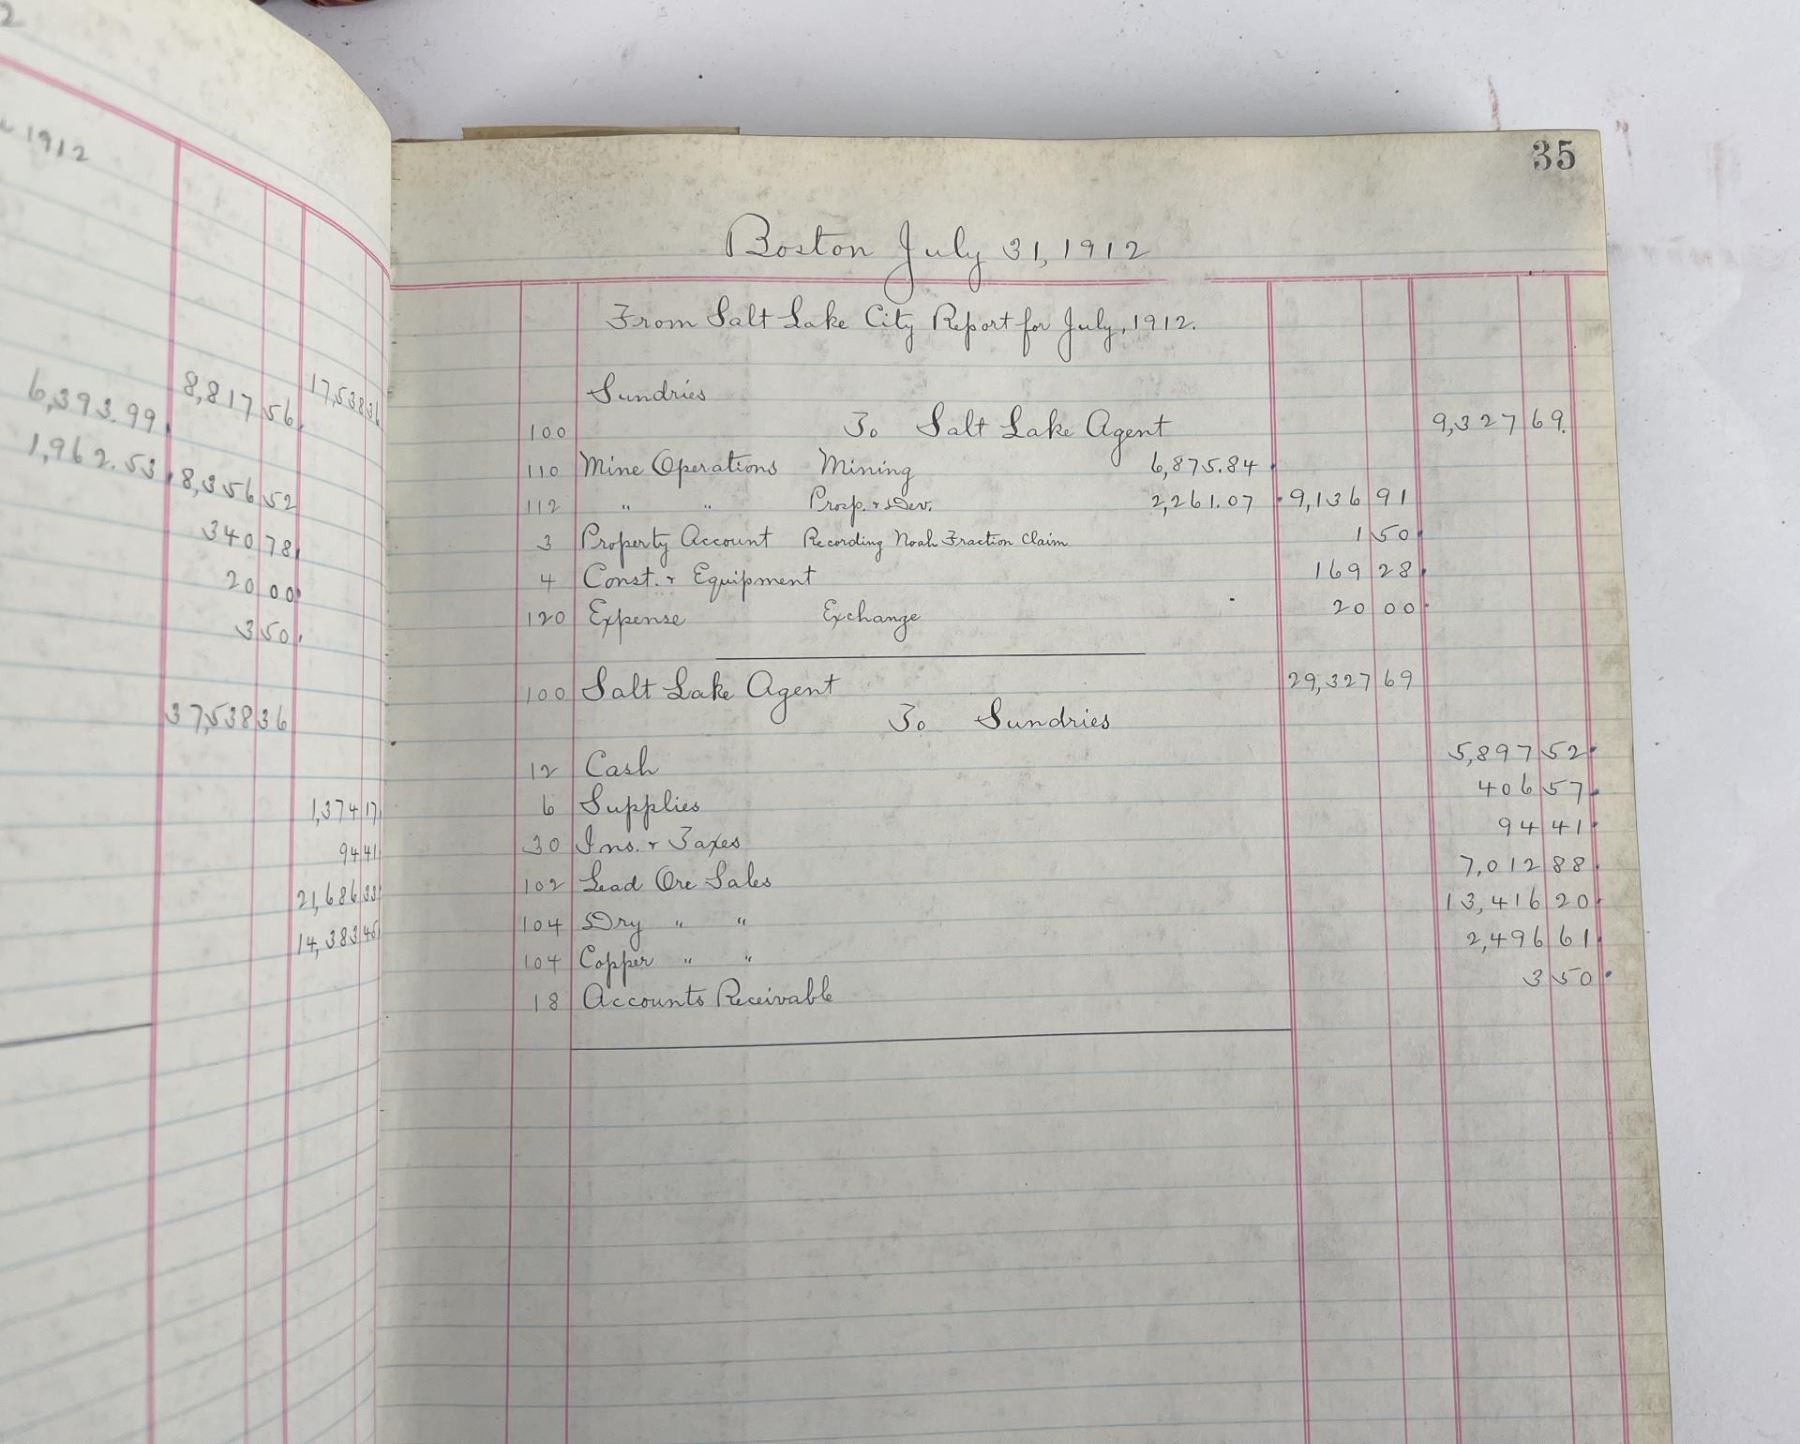 2
1912
8,817 56
17,538 36
6,393.99
1,962.53 8,356 52
340 78
20 00
3 50
37,538 36
1,374 17
94 41
21,686 33
14,383 45
35
Boston July 31, 1912
From Salt Lake City Report for July, 1912.
Sundries
100 To Salt Lake Agent 9,327 69
110 Mine Operations Mining 6,875.84
112 " " Prosp. & Dev. 2,261.07 9,136 91
3 Property Account Recording Noah Fraction Claim 1 50
4 Const. & Equipment 169 28
120 Expense Exchange 20 00
100 Salt Lake Agent 29,327 69
To Sundries
12 Cash 5,897 52
6 Supplies 406 57
30 Ins. & Taxes 94 41
102 Lead Ore Sales 7,012 88
104 Dry " " 13,416 20
104 Copper " " 2,496 61
18 Accounts Receivable 3 50